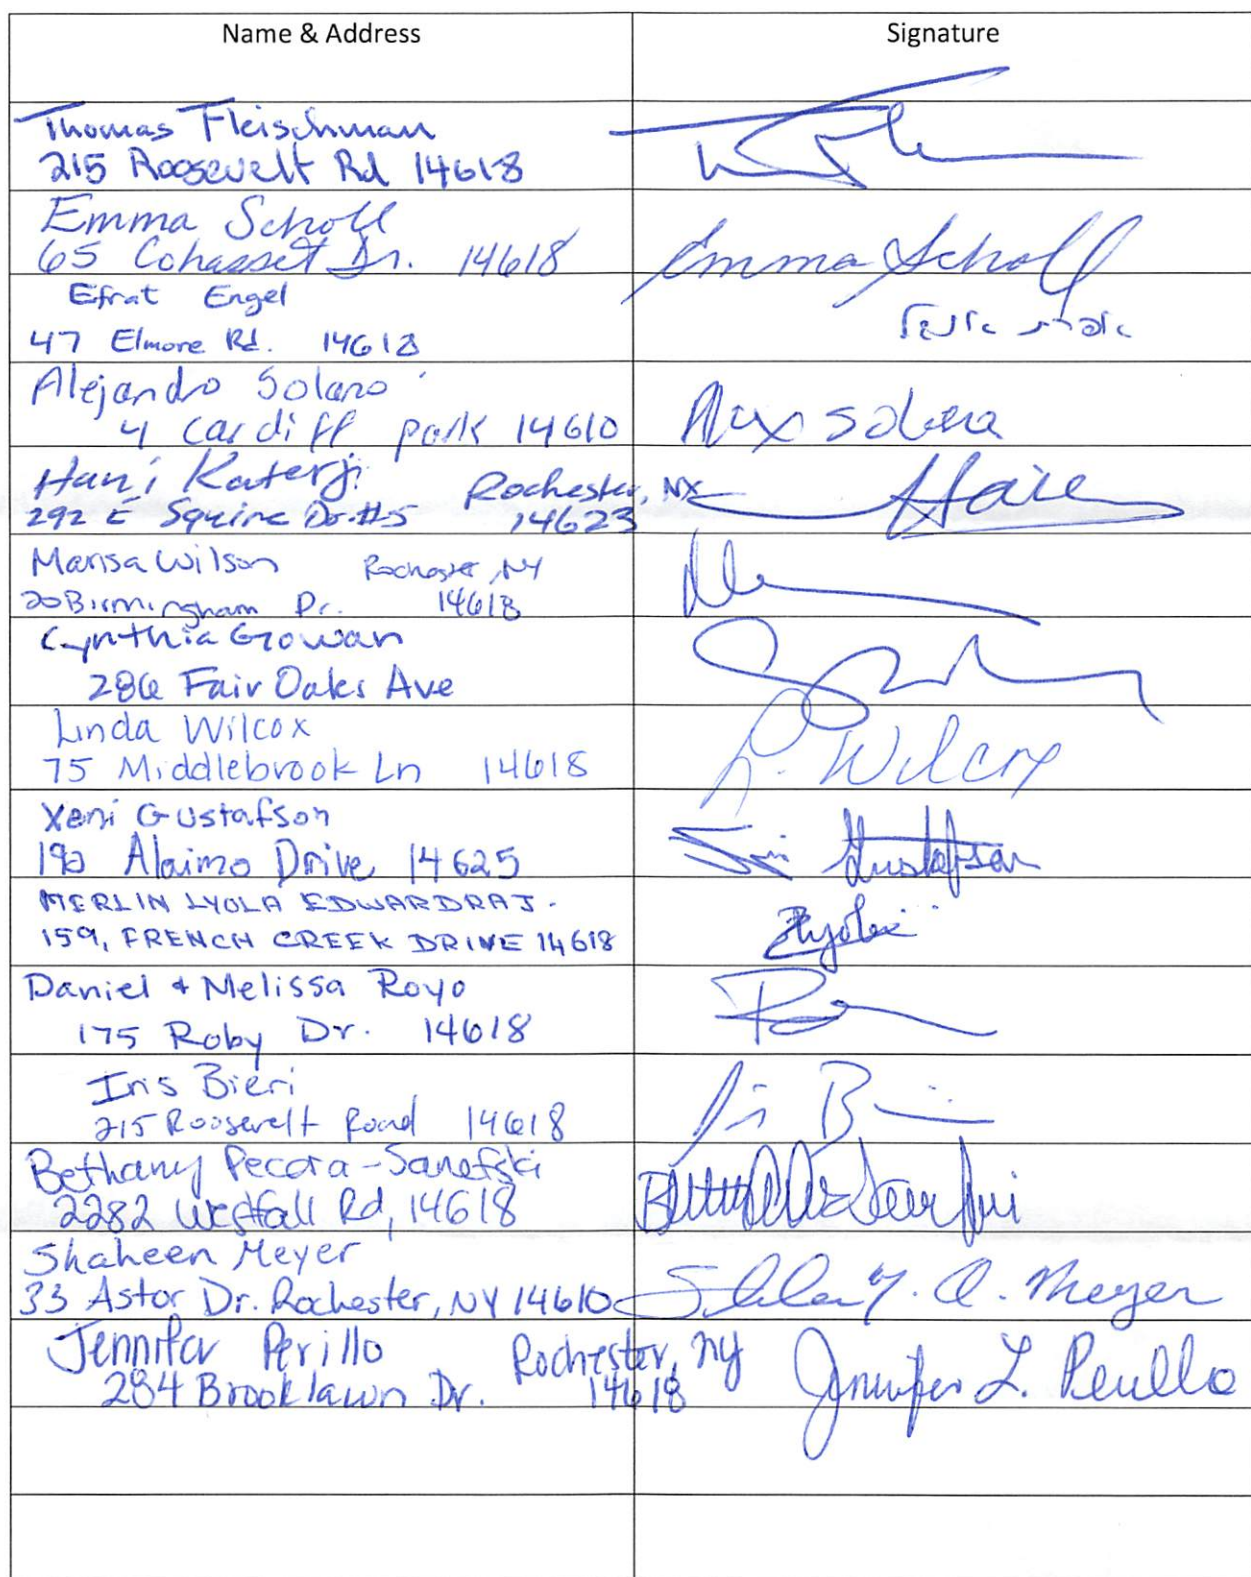 Name & Address Signature
Thomas Fleischman
215 Roosevelt Rd 14618
Emma Scholl
65 Cohasset Dr. 14618 Emma Scholl
Efrat Engel
47 Elmore Rd. 14618
Alejandro Solano
4 cardiff park 14610
Hani Katerji Rochester, NY
292 E Squire Dr. #5 14623
Marisa Wilson Rochester, NY
20 Birmingham Dr. 14618
Cynthia Gowan
286 Fair Oaks Ave
Linda Wilcox
75 Middlebrook Ln 14618 L. Wilcox
Xeni Gustafson
Alaimo Drive 14625 Gustafson
MERLIN LYOLA EDWARDRAJ.
159, FRENCH CREEK DRIVE 14618
Daniel + Melissa Royo
175 Roby Dr. 14618
Iris Bieri
215 Roosevelt Road 14618
Bethany Pecora-Sanefski
2282 Westfall Rd, 14618
Shaheen Meyer
33 Astor Dr. Rochester, NY 14610 Meyer
Jennifer Perillo Rochester, NY
284 Brooklawn Dr. 14618 Jennifer L. Perillo